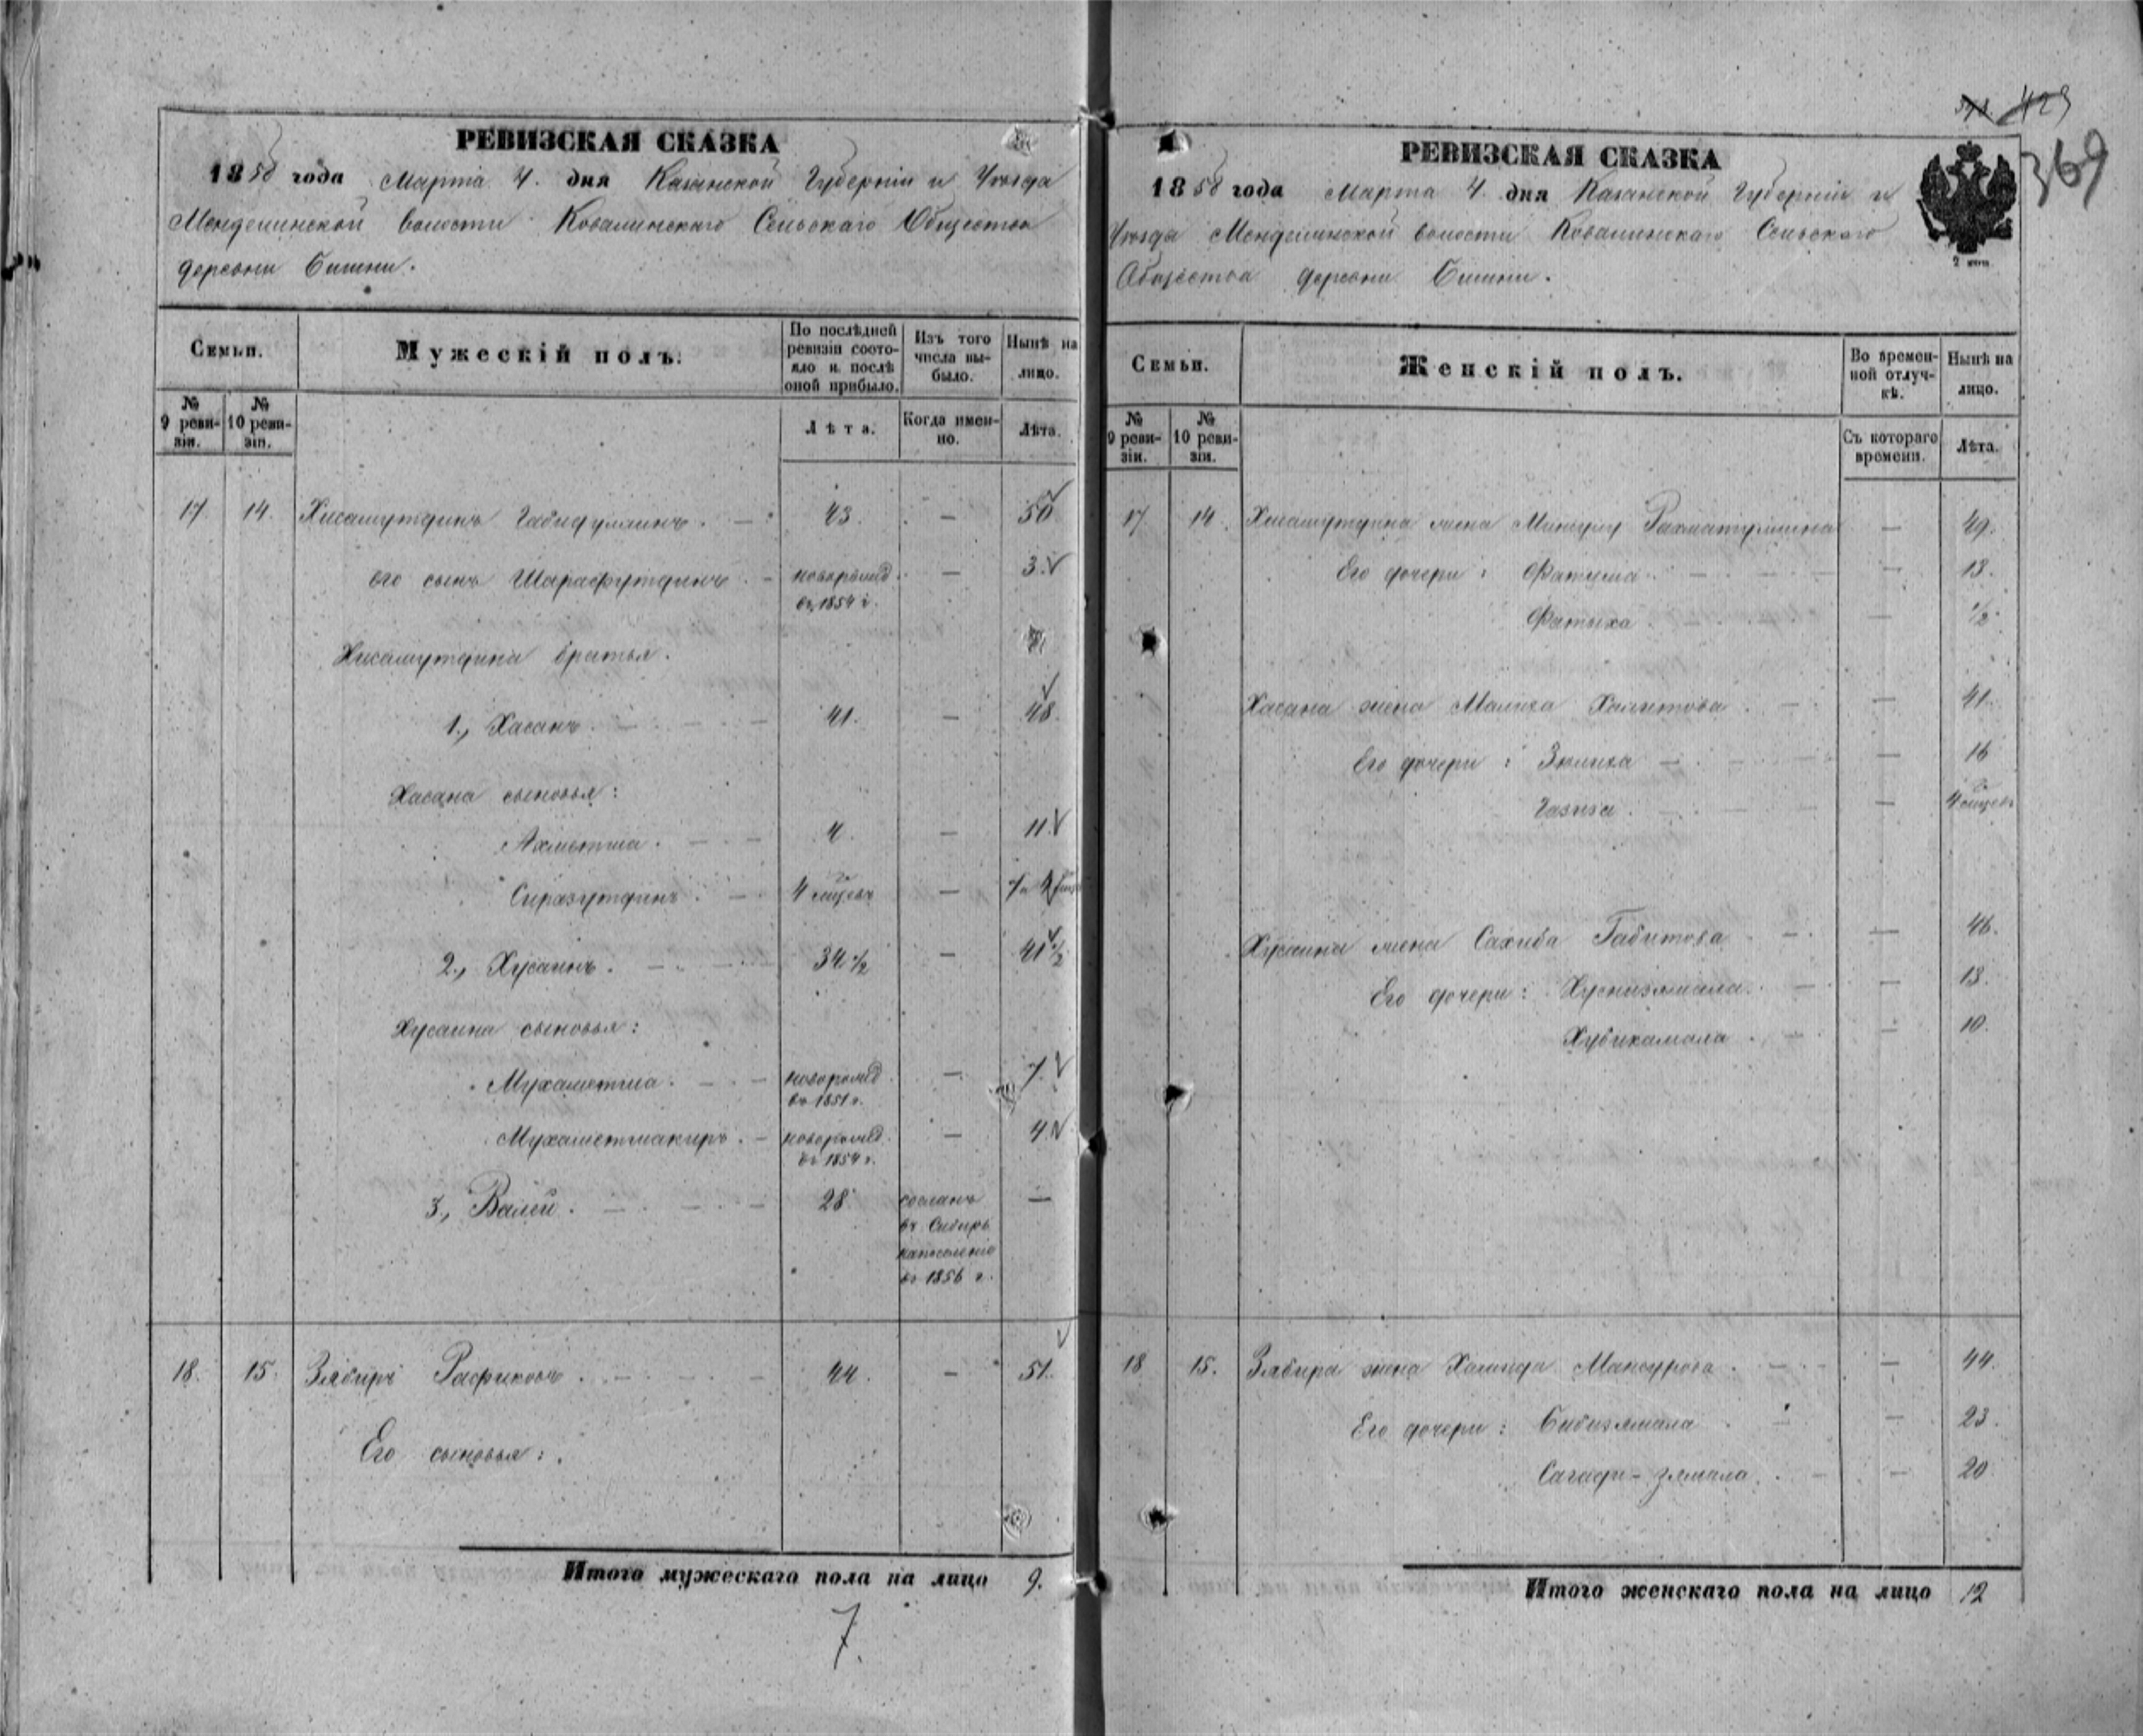 РЕВИЗСКАЯ СКАЗКА
1858 года Марта 4. дня Казанской Губерніи и Уѣзда
Менделинской волости Ковалинскаго Сельскаго Общества
деревни Бишни.
Семьи.
Мужескій полъ.
По послѣдней ревизіи состояло и послѣ оной прибыло.
Изъ того числа выбыло.
Нынѣ на лицо.
№ 9 ревизіи.
№ 10 ревизіи.
Лѣта.
Когда именно.
Лѣта.
17. 14. Хисамутдинъ Габидуллинъ. 43. — 50
его сынъ Шарафутдинъ новорожд. въ 1854 г. — 3.
Хисамутдина братья.
1., Хасанъ. 41. — 48.
Хасана сыновья:
Ахметша. 4. — 11.
Сиразутдинъ. 4 мѣсць —
2., Хусаинъ. 34 1/2 — 41 1/2
Хусаина сыновья:
Мухаметша. новорожд. въ 1851 г. — 7.
Мухаметшакиръ. новорожд. въ 1854 г. — 4.
3., Валей. 28 сосланъ въ Сибирь въ 1856 г. —
18. 15. Зябиръ Рафиковъ. 44. — 51.
Его сыновья:
Итого мужескаго пола на лицо 9.
7.
429
369
РЕВИЗСКАЯ СКАЗКА
1858 года Марта 4. дня Казанской Губерніи и
Уѣзда Менделинской волости Ковалинскаго Сельскаго
Общества деревни Бишни.
2 коп
Семьи.
Женскій полъ.
Во временной отлучкѣ.
Нынѣ на лицо.
№ 9 ревизіи.
№ 10 ревизіи.
Съ котораго времени.
Лѣта.
17 14. Хисамутдина жена Рахматуллина — 49.
Его дочери: Фатима — 13.
Фатыха — 1/2.
Хасана жена Малиха Хамитова — 41.
Его дочери: Зюлиха — 16
Газиза. — 4 мѣсць
Хусаина жена Сахиба Габитова — 46.
Его дочери: Хуснизямала. — 13.
Хубикамала. — 10.
18 15. Зябира жена Хамида Мансурова. — 44.
Его дочери: Бибизямала — 23.
Сагади-зямала. — 20
Итого женскаго пола на лицо 12